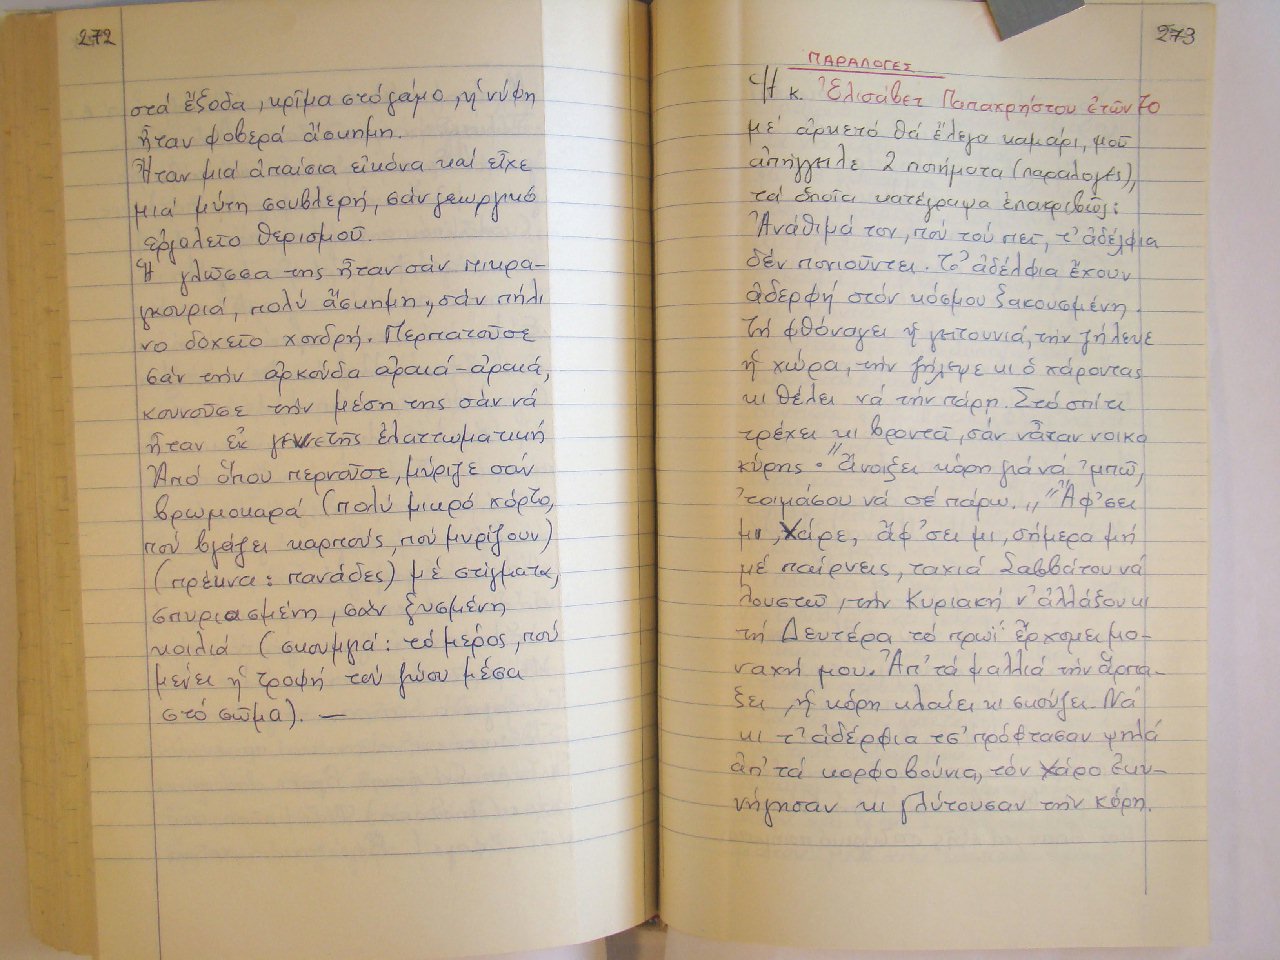 272
στά ἔξοδα, κρῖμα στό γάμο, ἡ νύφη
ἦταν φοβερά ἄσκημη.
Ἦταν μιά ἀπαίσια εἰκόνα καί εἶχε
μιά μύτη σουβλερή, σάν γεωργικό
ἐργαλεῖο θερισμοῦ.
Ἡ γλῶσσα της ἦταν σάν πικρα-
γκουριά, πολύ ἄσκημη, σάν πήλι
νο δοχεῖο χονδρή. Περπατοῦσε
σάν τήν ἀρκούδα ἀραιά-ἀραιά,
κουνοῦσε τήν μέση της σάν νά
ἦταν ἐκ γενετῆς ἐλαττωματική
Ἀπό ὅπου περνοῦσε, μύριζε σάν
βρωμοκαρά (πολύ μικρό χόρτο,
πού βγάζει καρπούς, πού μυρίζουν)
(πρέκνα: πανάδες) μέ στίγματα,
σπυριασμένη, σάν ξυσμένη
κοιλιά (σκουμπιά: τό μέρος, πού
μένει ἡ τροφή τοῦ ζώου μέσα
στό σῶμα). —
273
ΠΑΡΑΛΟΓΕΣ
Ἡ κ. Ἐλισάβετ Παπαχρήστου ἐτῶν 70
μέ ἀρκετό θά ἔλεγα καμάρι, μοῦ
ἀπήγγειλε 2 ποιήματα (παραλογές),
τά ὁποῖα κατέγραψα ἐπακριβῶς:
Ἀνάθιμά τον, πού τοῦ πεῖ, τ' ἀδέλφια
δέν πονιοῦντει. Τ' ἀδέλφια ἔχουν
ἀδερφή στόν κόσμου ξακουσμένη.
Τή φθόναγει ἡ γειτουνιά, τήν ζήλευε
ἡ χώρα, τήν ζήλεψε κι ὁ χάροντας
κι θέλει νά τήν πάρη. Στό σπίτι
τρέχει κι βροντᾶ, σάν νἆταν νοικο
κύρης. "Ἄνοιξει κόρη γιά νά 'μπῶ,
'τοιμάσου νά σέ πάρω." "Ἄφ'σει
μι, Χάρε, ἄφ'σει μι, σήμερα μή
μέ παίρνεις, ταχιά Σαββάτου νά
λουστῶ, τήν Κυριακή ν' ἀλλάξου κι
τή Δευτέρα τό πρωί ἔρχομει μο-
ναχή μου. Ἀπ' τά μαλλιά τήν ἅρπα-
ξει, ἡ κόρη κλαίει κι σκούζει. Νά
κι τ' ἀδέρφια τσ' πρόφτασαν ψηλά
ἀπ' τά κορφοβούνια, τόν Χάρο ἐκυ-
νήγησαν κι γλύτουσαν τήν κόρη.